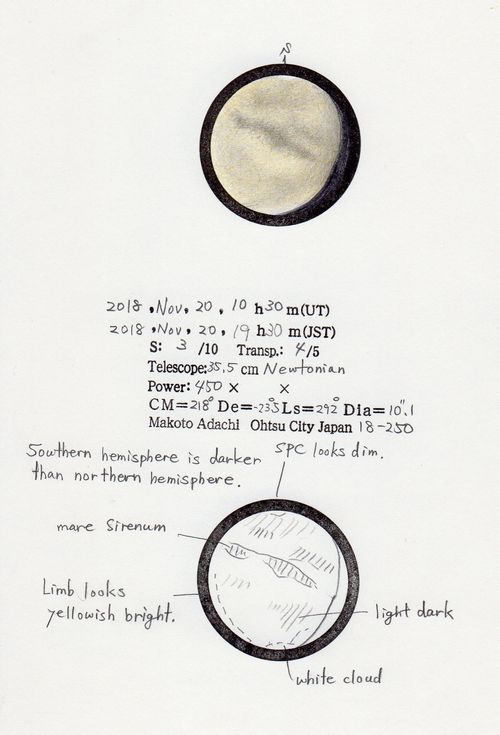 S
2018, Nov, 20, 10 h 30 m (UT)
2018, Nov, 20, 19 h 30 m (JST)
S: 3 /10 Transp.: 4/5
Telescope: 35.5 cm Newtonian
Power: 450 × ×
CM=218° De=-23.5° Ls=292° Dia=10".1
Makoto Adachi Ohtsu City Japan 18-250
Southern hemisphere is darker
than northern hemisphere.
SPC looks dim.
mare Sirenum
Limb looks
yellowish bright.
light dark
white cloud